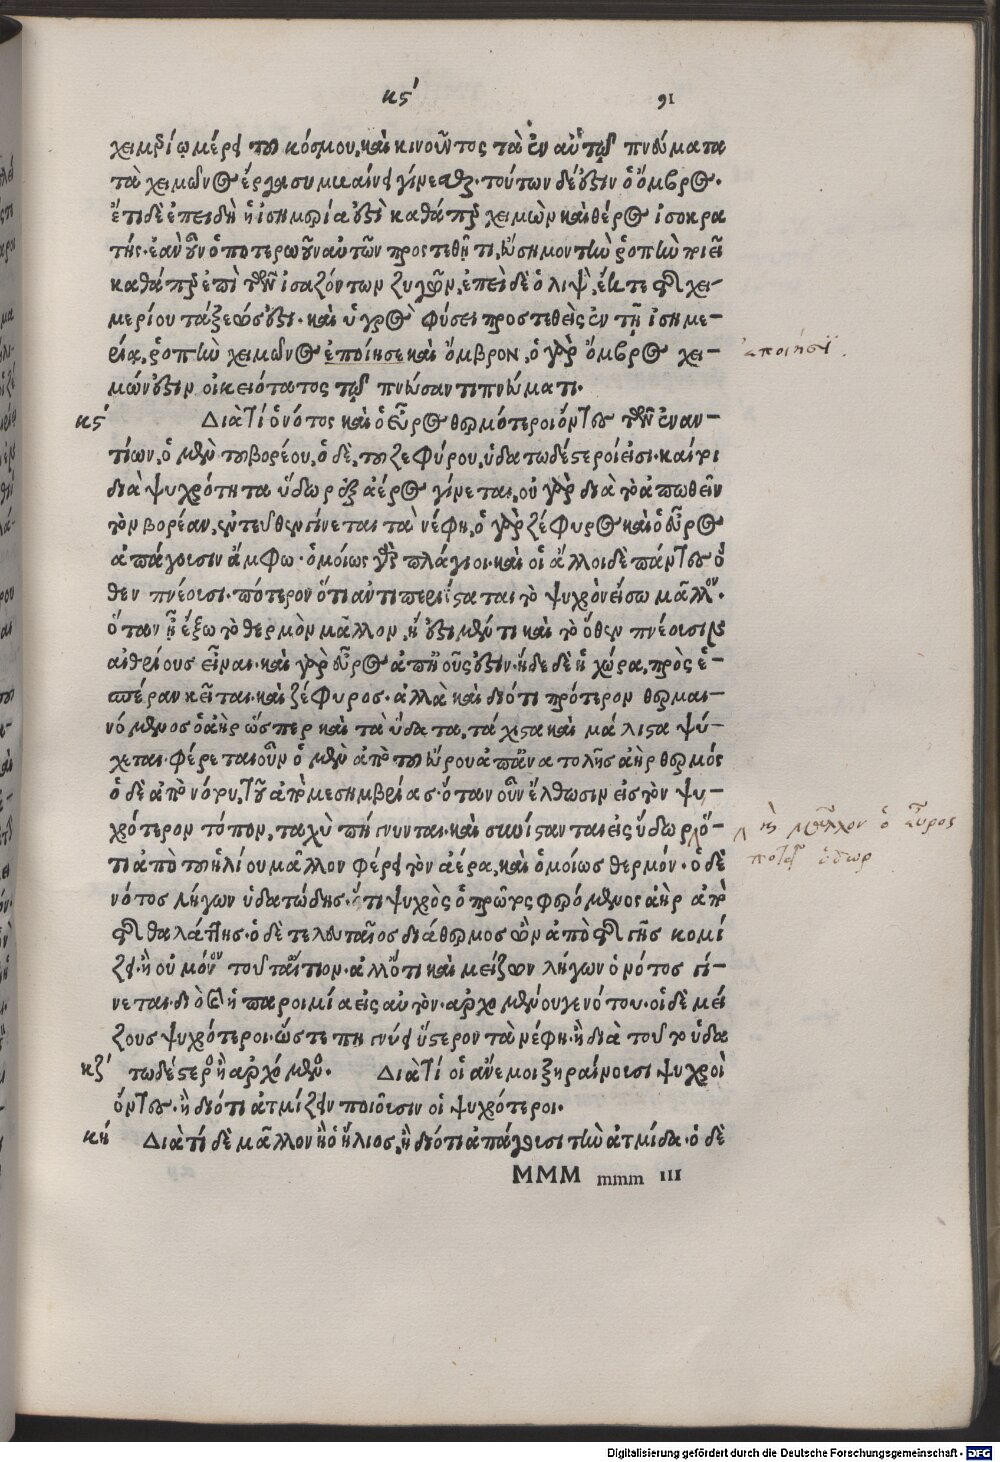 κϛʹ 91
χειμερίῳ μέρει τοῦ κόσμου, καὶ κινοῦντος τὰ ἐν αὐτῷ πνεύματα
τὰ χειμῶνος ἔργα συμβαίνει γίνεσθαι. τούτων δέ ἐστιν ὁ ὄμβρος.
ἔτι δὲ ἐπειδὴ ἡ ἰσημερία ἐστὶ καθάπερ χειμὼν καὶ θέρος ἰσοκρα
τής. ἐὰν οὖν ὁποτερωοῦν αὐτῶν προστεθῇ τι, εὔσημον τὴν ῥοπὴν ποιεῖ
καθάπερ ἐπὶ τῶν ἰσαζόντων ζυγῶν, ἐπεὶ δὲ ὁ λὶψ, ἔκ τε τῆς χει-
μερίου τάξεώς ἐστι. καὶ ὑγρὸς φύσει προστεθεὶς ἐν τῇ ἰσημε-
ρίᾳ, ῥοπὴν χειμῶνος ἐποίησε καὶ ὄμβρον, ὁ γὰρ ὄμβρος χει-
μών ἐστιν οἰκειότατος τῷ πνεύσαντι πνεύματι.
ἐποίησε
κϛʹ Διὰ τί ὁ νότος καὶ ὁ εὖρος θερμότεροι ὄντες τῶν ἐναν-
τίων, ὁ μὲν τοῦ βορέου, ὁ δὲ, τοῦ ζεφύρου, ὑδατωδέστεροί εἰσι. καίτοι
διὰ ψυχρότητα ὕδωρ ἐξ ἀέρος γίνεται, οὐ γὰρ διὰ τὸ ἀπωθεῖν
τὸν βορέαν, ἐντεῦθεν γίνεται τὰ νέφη, ὁ γὰρ ζέφυρος καὶ ὁ εὖρος
ἀπάγουσιν ἄμφω. ὁμοίως γὰρ πλάγιοι. καὶ οἱ ἄλλοι δὲ πάντες ὅ
θεν πνέουσι. πότερον ὅτι ἀντιπεριίσταται τὸ ψυχρὸν εἴσω μᾶλλον.
ὅταν ᾖ ἔξω τὸ θερμὸν μᾶλλον, ἢ ἔστι μέν τι καὶ τὸ ὅθεν πνέουσι
αἰθρίους εἶναι. καὶ γὰρ εὖρος ἀπ' ἠοῦς ἐστιν. ἥδε δὲ ἡ χώρα, πρὸς ἑ-
σπέραν κεῖται. καὶ ζέφυρος. ἀλλὰ καὶ διότι πρότερον θερμαι-
νόμενος ὁ ἀὴρ ὥσπερ καὶ τὰ ὕδατα, τάχιστα καὶ μάλιστα ψύ-
χεται. φέρεται οὖν ὁ μὲν ἀπὸ τοῦ εὔρου ἀπ' ἀνατολῆς ἀὴρ θερμός
ὁ δὲ ἀπὸ νότου, τοῦ ἀπὸ μεσημβρίας. ὅταν οὖν ἔλθωσιν εἰς τὸν ψυ-
χρότερον τόπον, ταχὺ πήγνυνται. καὶ συνίστανται εἰς ὕδωρ ὅ-
τι ἀπὸ τοῦ ἡλίου μᾶλλον φέρει τὸν ἀέρα, καὶ ὁμοίως θερμόν. ὁ δὲ
νότος λήγων ὑδατώδης. ὅτι ψυχρὸς ὁ πρῶτος φερόμενος ἀὴρ ἀπὸ
τῆς θαλάττης. ὁ δὲ τελευταῖος διάθερμος ὢν ἀπὸ τῆς γῆς κομί
ζει. ἢ οὐ μόνον τοῦτ' αἴτιον. ἀλλ' ὅτι καὶ μείζων λήγων ὁ νότος γί-
νεται. διὸ καὶ ἡ παροιμία εἰς αὐτὸν. ἀρχομένου γε νότου. οἱ δὲ μεί
ζους ψυχρότεροι. ὥστε πηγνύει ὕστερον τὰ νέφη. ἢ διὰ τοῦτο ὑδα
τωδέστερος ἢ ἀρχόμενος.
καὶ μᾶλλον ὁ εὖρος
ποιεῖ ὕδωρ
κζʹ Διὰ τί οἱ ἄνεμοι ξηραίνουσι ψυχροὶ
ὄντες. ἢ διότι ἀτμίζειν ποιοῦσιν οἱ ψυχρότεροι.
κηʹ Διὰ τί δὲ μᾶλλον ἢ ὁ ἥλιος, ἢ διότι ἀπάγουσι τὴν ἀτμίδα. ὁ δὲ
MMM mmm III
Digitalisierung gefördert durch die Deutsche Forschungsgemeinschaft - DFG